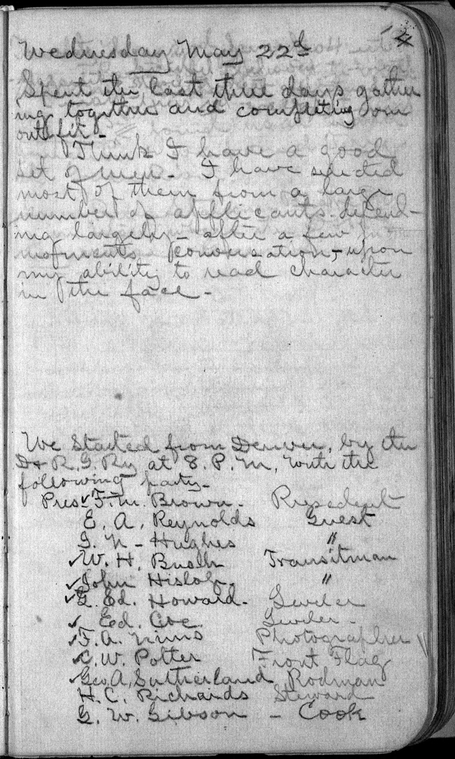 4
Wednesday May 22d
Spent the last three days gather
ing together and completing our
outfit -
I think I have a good
set of men - I have selected
most of them from a large
number of applicants - depend-
ing largely - after a few
moments conversation, - upon
my ability to read character
in the face -
We started from Denver, by the
D & R. G. Ry at 8. P. M, with the
following party -
Pres ✓ F. M. Brown - President
E. A, Reynolds Guest
G. N - Hughes "
✓ W. H. Bush Transitman
✓ John Hislop - "
✓ G. Ed. Howard -
✓ Ed. Coe
✓ F. A. Nims Photographer
✓ C. W. Potter Front Flag
✓ Geo. A, Sutherland Rodman
H. C. Richards Steward
G. W. Gibson - Cook